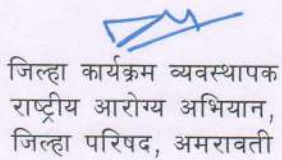 जिल्हा कार्यक्रम व्यवस्थापक
राष्ट्रीय आरोग्य अभियान,
जिल्हा परिषद, अमरावती